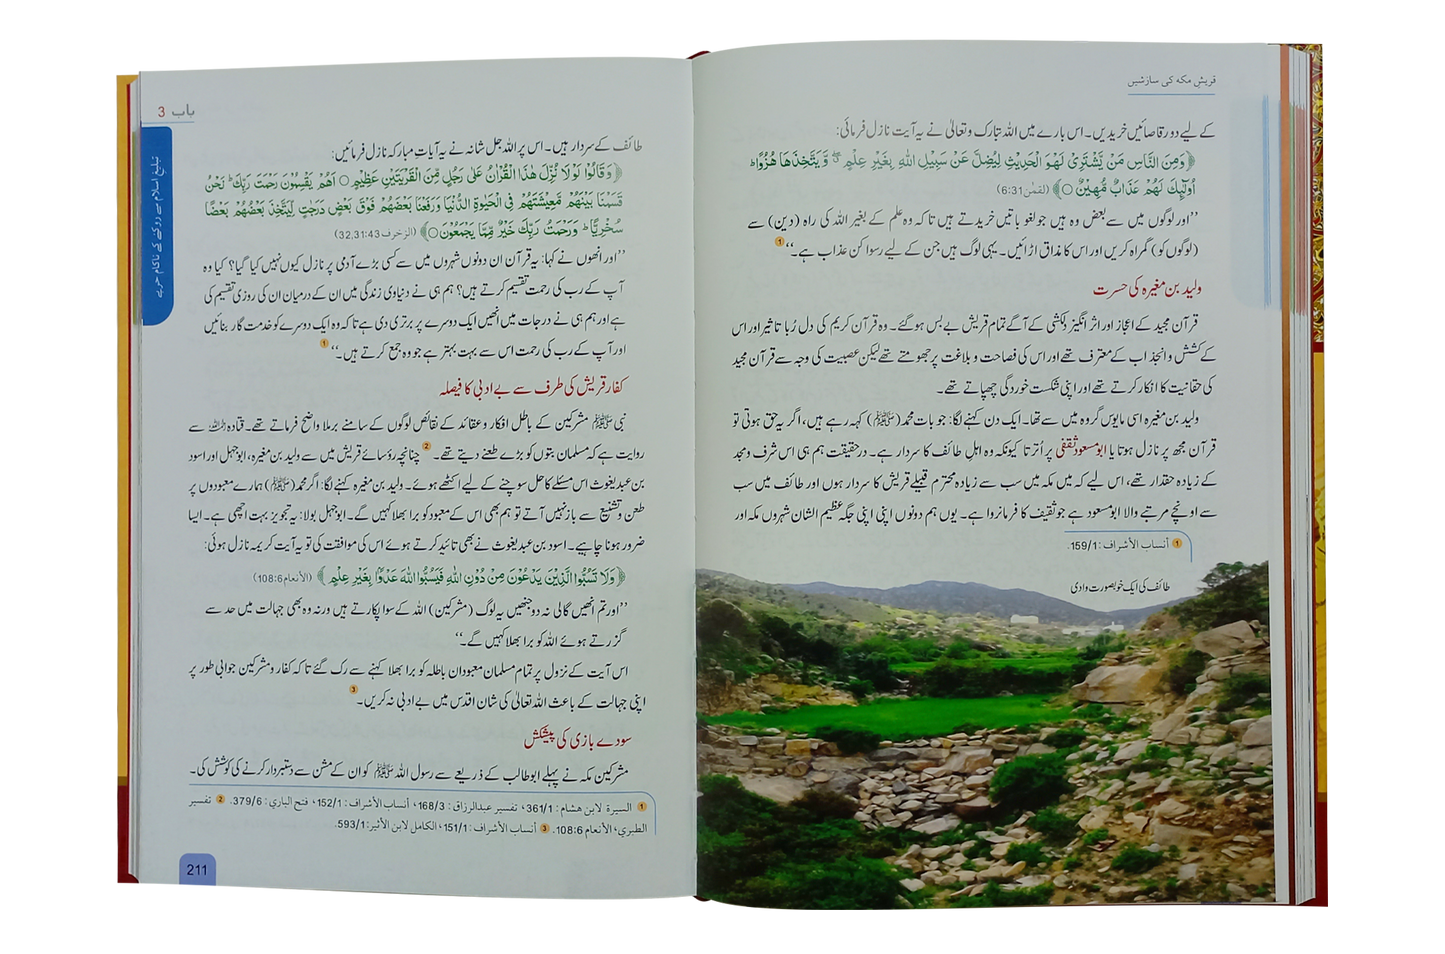 قریش مکہ کی سازشیں
کے لیے دو رقاصائیں خریدیں۔ اس بارے میں اللہ تبارک وتعالیٰ نے یہ آیت نازل فرمائی:
﴿وَمِنَ النَّاسِ مَنْ يَّشْتَرِيْ لَهْوَ الْحَدِيْثِ لِيُضِلَّ عَنْ سَبِيْلِ اللّٰهِ بِغَيْرِ عِلْمٍ ۖ وَّ يَتَّخِذَهَا هُزُوًا ؕ
اُولٰٓئِكَ لَهُمْ عَذَابٌ مُّهِيْنٌ ○﴾ (لقمٰن 6:31)
’’اور لوگوں میں سے بعض وہ ہیں جو لغو باتیں خریدتے ہیں تاکہ وہ علم کے بغیر اللہ کی راہ (دین) سے
(لوگوں کو) گمراہ کریں اور اس کا مذاق اڑائیں۔ یہی لوگ ہیں جن کے لیے رسوا کن عذاب ہے۔‘‘ 1
ولید بن مغیرہ کی حسرت
قرآن مجید کے اعجاز اور اثر انگیز دلکشی کے آگے تمام قریش بے بس ہوگئے۔ وہ قرآن کریم کی دل رُبا تاثیر اور اس
کے کشش و انجذاب کے معترف تھے اور اس کی فصاحت و بلاغت پر جھومتے تھے لیکن عصبیت کی وجہ سے قرآن مجید
کی حقانیت کا انکار کرتے تھے اور اپنی شکست خوردگی چھپاتے تھے۔
ولید بن مغیرہ اسی مایوس گروہ میں سے تھا۔ ایک دن کہنے لگا: جو بات محمد (ﷺ) کہہ رہے ہیں، اگر یہ حق ہوتی تو
قرآن مجھ پر نازل ہوتا یا ابو مسعود ثقفی پر اُترتا کیونکہ وہ اہلِ طائف کا سردار ہے۔ درحقیقت ہم ہی اس شرف و مجد
کے زیادہ حقدار تھے، اس لیے کہ میں مکہ میں سب سے زیادہ محترم قبیلے قریش کا سردار ہوں اور طائف میں سب
سے اونچے مرتبے والا ابو مسعود ہے جو ثقیف کا فرمانروا ہے۔ یوں ہم دونوں اپنی اپنی جگہ عظیم الشان شہروں مکہ اور
1 أنساب الأشراف: 159/1.
طائف کی ایک خوبصورت وادی
باب 3
تبلیغ اسلام سے روکنے کے ناکام حربے
طائف کے سردار ہیں۔ اس پر اللہ جل شانہ نے یہ آیات مبارکہ نازل فرمائیں:
﴿وَقَالُوْا لَوْلَا نُزِّلَ هٰذَا الْقُرْاٰنُ عَلٰى رَجُلٍ مِّنَ الْقَرْيَتَيْنِ عَظِيْمٍ ○ اَهُمْ يَقْسِمُوْنَ رَحْمَتَ رَبِّكَ ؕ نَحْنُ
قَسَمْنَا بَيْنَهُمْ مَّعِيْشَتَهُمْ فِي الْحَيٰوةِ الدُّنْيَا وَرَفَعْنَا بَعْضَهُمْ فَوْقَ بَعْضٍ دَرَجٰتٍ لِّيَتَّخِذَ بَعْضُهُمْ بَعْضًا
سُخْرِيًّا ؕ وَرَحْمَتُ رَبِّكَ خَيْرٌ مِّمَّا يَجْمَعُوْنَ ○﴾ (الزخرف 32,31:43)
’’اور انھوں نے کہا: یہ قرآن ان دونوں شہروں میں سے کسی بڑے آدمی پر نازل کیوں نہیں کیا گیا؟ کیا وہ
آپ کے رب کی رحمت تقسیم کرتے ہیں؟ ہم ہی نے دنیاوی زندگی میں ان کے درمیان ان کی روزی تقسیم کی
ہے اور ہم ہی نے درجات میں انھیں ایک دوسرے پر برتری دی ہے تاکہ وہ ایک دوسرے کو خدمت گار بنائیں
اور آپ کے رب کی رحمت اس سے بہت بہتر ہے جو وہ جمع کرتے ہیں۔‘‘ 1
کفار قریش کی طرف سے بے ادبی کا فیصلہ
نبی ﷺ مشرکین کے باطل افکار و عقائد کے نقائص لوگوں کے سامنے برملا واضح فرماتے تھے۔ قتادہ رحمہ اللہ سے
روایت ہے کہ مسلمان بتوں کو بڑے طعنے دیتے تھے۔ 2 چنانچہ رؤسائے قریش میں سے ولید بن مغیرہ، ابوجہل اور اسود
بن عبد یغوث اس مسئلے کا حل سوچنے کے لیے اکٹھے ہوئے۔ ولید بن مغیرہ کہنے لگا: اگر محمد (ﷺ) ہمارے معبودوں پر
طعن و تشنیع سے باز نہیں آتے تو ہم بھی اس کے معبود کو برا بھلا کہیں گے۔ ابوجہل بولا: یہ تجویز بہت اچھی ہے۔ ایسا
ضرور ہونا چاہیے۔ اسود بن عبد یغوث نے بھی تائید کرتے ہوئے اس کی موافقت کی تو یہ آیت کریمہ نازل ہوئی:
﴿وَلَا تَسُبُّوا الَّذِيْنَ يَدْعُوْنَ مِنْ دُوْنِ اللّٰهِ فَيَسُبُّوا اللّٰهَ عَدْوًۢا بِغَيْرِ عِلْمٍ﴾ (الأنعام 108:6)
’’اور تم انھیں گالی نہ دو جنھیں یہ لوگ (مشرکین) اللہ کے سوا پکارتے ہیں ورنہ وہ بھی جہالت میں حد سے
گزرتے ہوئے اللہ کو برا بھلا کہیں گے۔‘‘
اس آیت کے نزول پر تمام مسلمان معبودان باطلہ کو برا بھلا کہنے سے رک گئے تاکہ کفار و مشرکین جوابی طور پر
اپنی جہالت کے باعث اللہ تعالیٰ کی شان اقدس میں بے ادبی نہ کریں۔ 3
سودے بازی کی پیشکش
مشرکین مکہ نے پہلے ابوطالب کے ذریعے سے رسول اللہ ﷺ کو ان کے مشن سے دستبردار کرنے کی کوشش کی۔
1 السيرة لابن هشام: 361/1، تفسير عبدالرزاق: 168/3، أنساب الأشراف: 152/1، فتح الباري: 379/6. 2 تفسير
الطبري، الأنعام 108:6. 3 أنساب الأشراف: 151/1، الكامل لابن الأثير: 593/1.
211